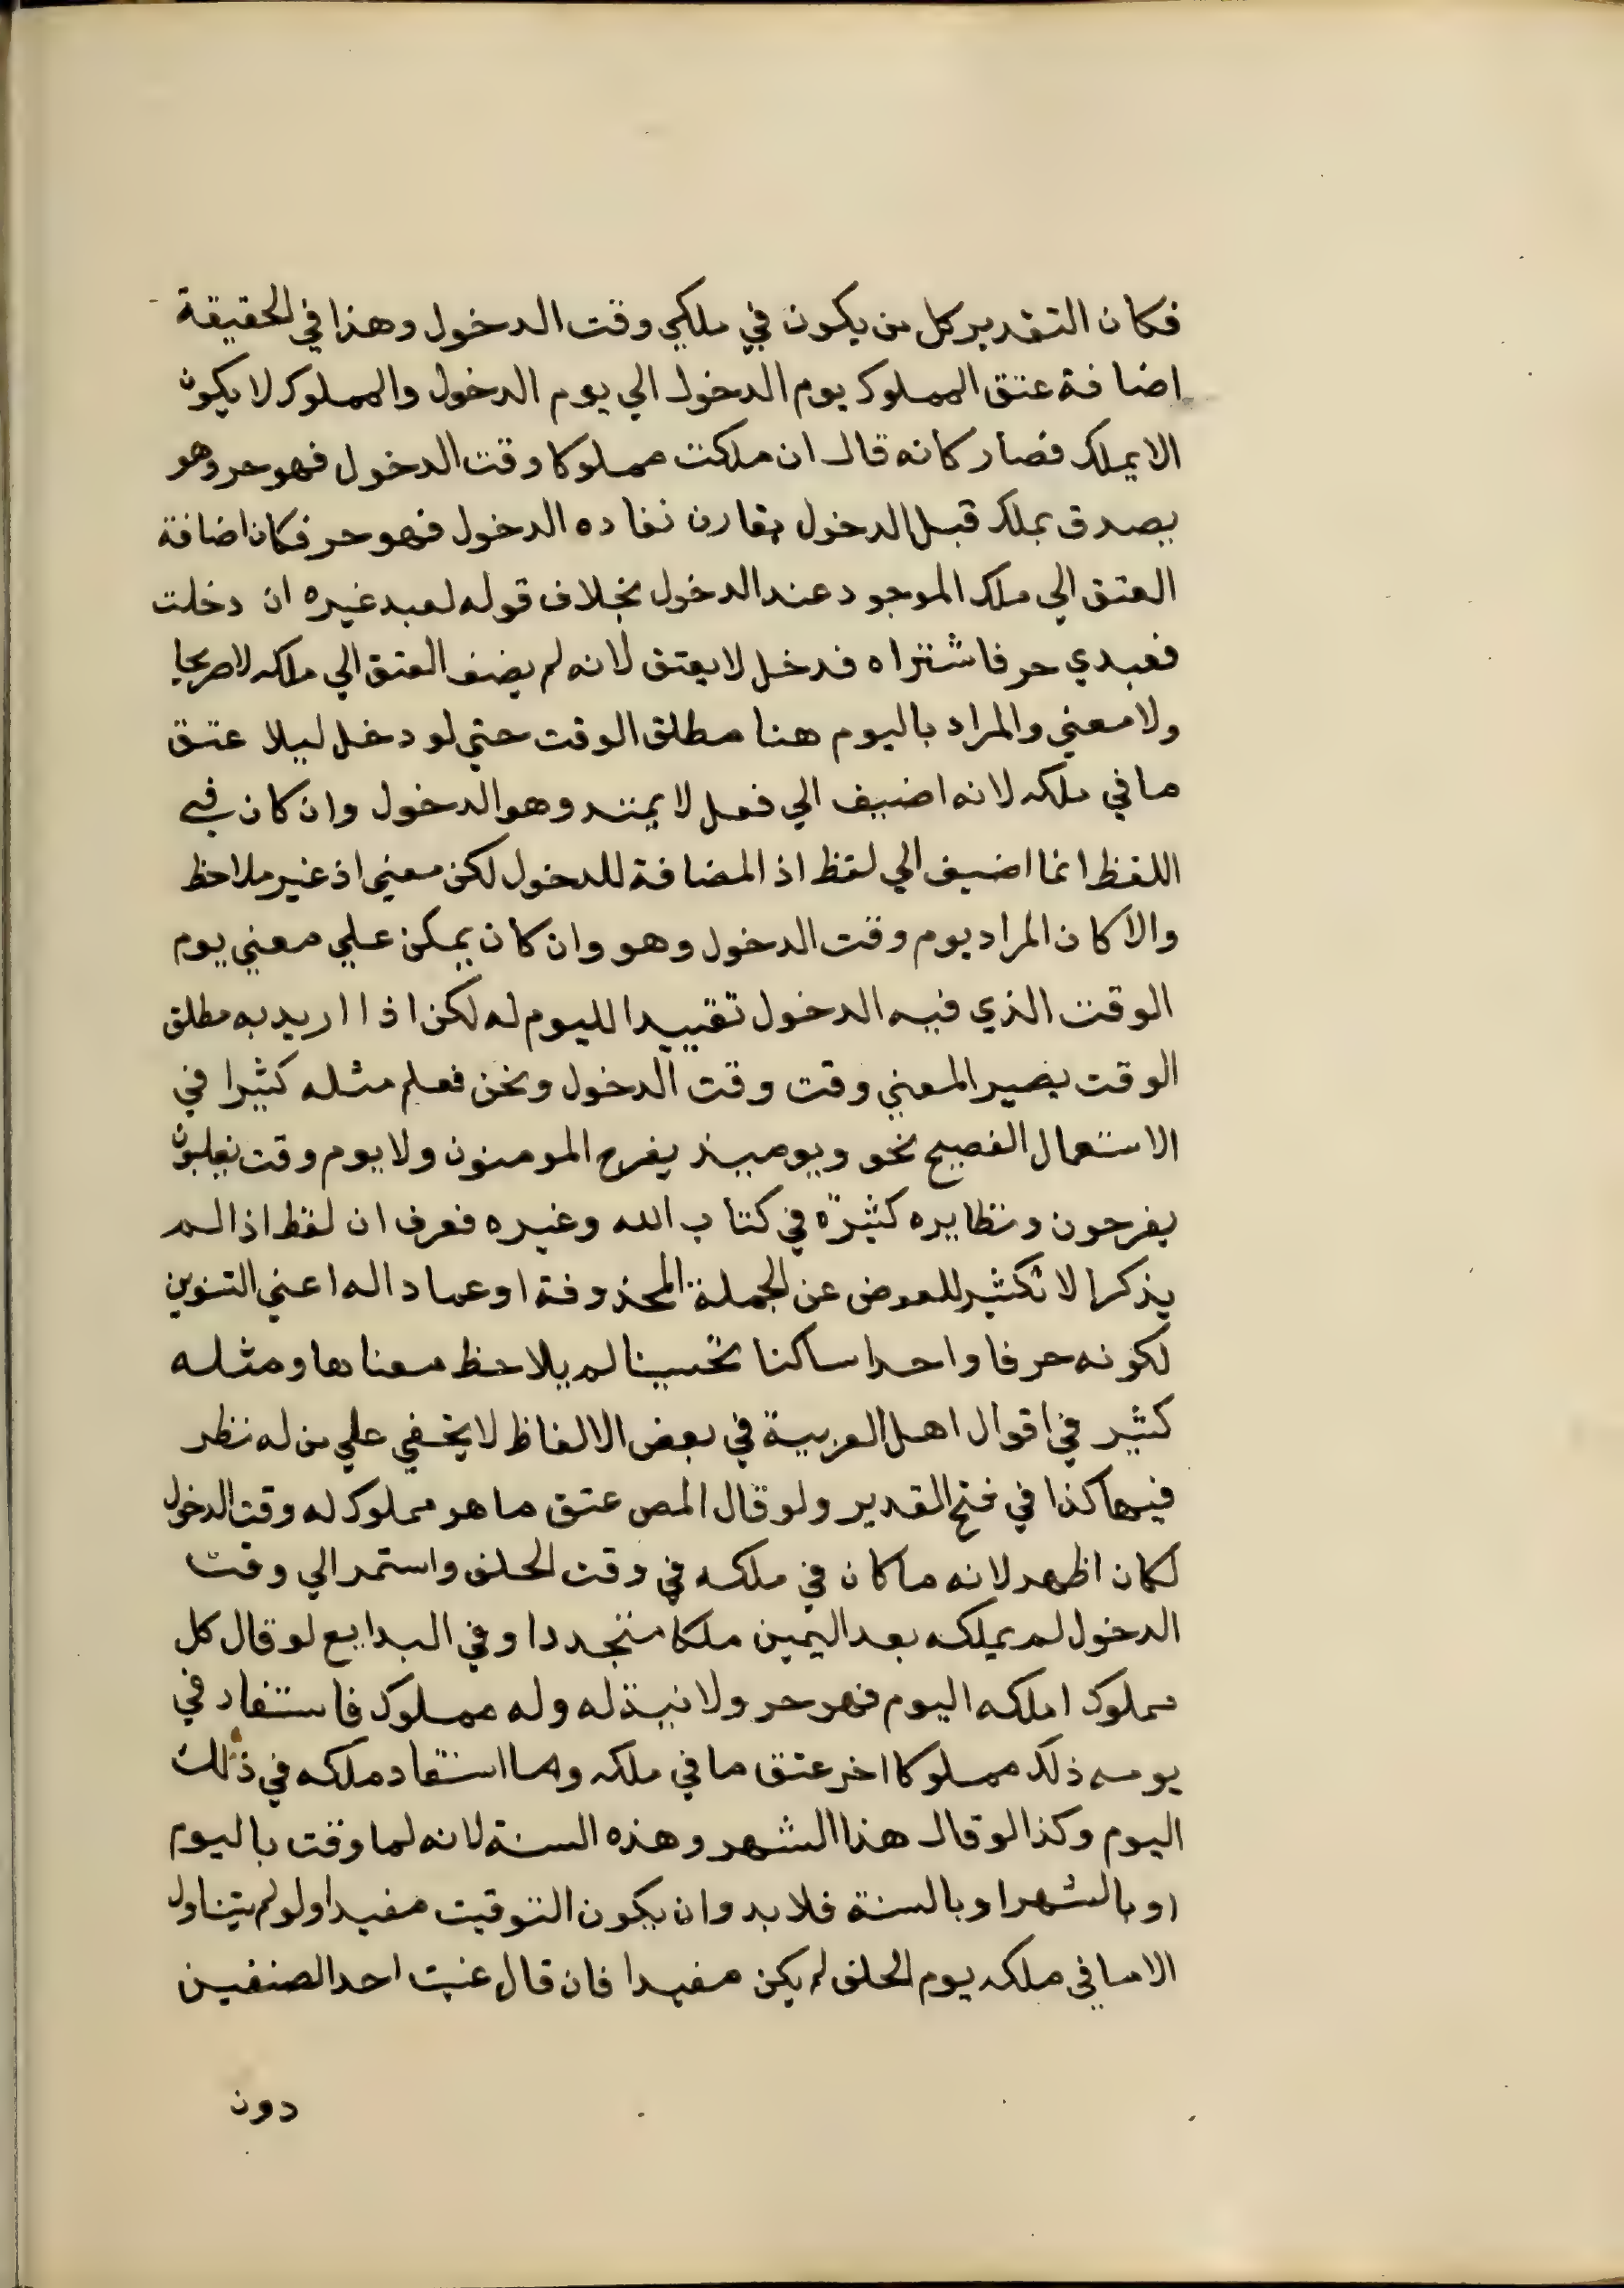 فكان التقدير كل من يكون في ملكي وقت الدخول وهذا في الحقيقة
اضافة عتق المملوك يوم الدخول الي يوم الدخول والمملوك لا يكون
الا يملك فصار كانه قال ان ملكت مملوكا وقت الدخول فهو حر وهو
يصدق بملك قبل الدخول يقارن نفاده الدخول فهو حر فكان اضافة
العتق الي ملك الموجود عند الدخول بخلاف قوله لعبد غيره ان دخلت
فعبدي حر فاشتراه فدخل لا يعتق لانه لم يضف العتق الي ملكه لا صريحا
ولا معني والمراد باليوم هنا مطلق الوقت حتي لو دخل ليلا عتق
ما في ملكه لانه اضيف الي فعل لا يمتد وهو الدخول وان كان في
اللفظ انما اضيف الي لفظ اذ المضافة للدخول لكن معني اذ غير ملاحظ
والا كان المراد يوم وقت الدخول وهو وان كان يمكن علي معني يوم
الوقت الذي فيه الدخول تقييدا لليوم له لكن اذا اريد به مطلق
الوقت يصير المعني وقت وقت الدخول ونحن فعلم مثله كثيرا في
الاستعمال الفصيح نحو ويوميذ يفرح المومنون ولا يوم وقت يغلبون
يفرحون ونظايره كثيرة في كتاب الله وغيره فعرف ان لفظ اذا لم
يذكر الا تكثير للعوض عن الجملة المحذوفة او عمادا له اعني التنوين
لكونه حرفا واحدا ساكنا تحسينا لم يلاحظ معناها ومثله
كثير في اقوال اهل العربية في بعض الالفاظ لا يخفي علي من له نظر
فيها كذا في فتح القدير ولو قال المص عتق ما هو مملوك له وقت الدخول
لكان اظهر لانه ما كان في ملكه في وقت الحلف واستمر الي وقت
الدخول لم يملكه بعد اليمين ملكا متجددا وفي البدايع لو قال كل
مملوك املكه اليوم فهو حر ولا نية له وله مملوك فاستفاد في
يومه ذلك مملوكا اخر عتق ما في ملكه وما استفاد ملكه في ذلك
اليوم وكذا لو قال هذا الشهر وهذه السنة لانه لما وقت باليوم
او بالشهر او بالسنة فلا بد وان يكون التوقيت مفيدا ولو لم يتناول
الا ما في ملكه يوم الحلف لم يكن مفيدا فان قال عنيت احد الصنفين
دون